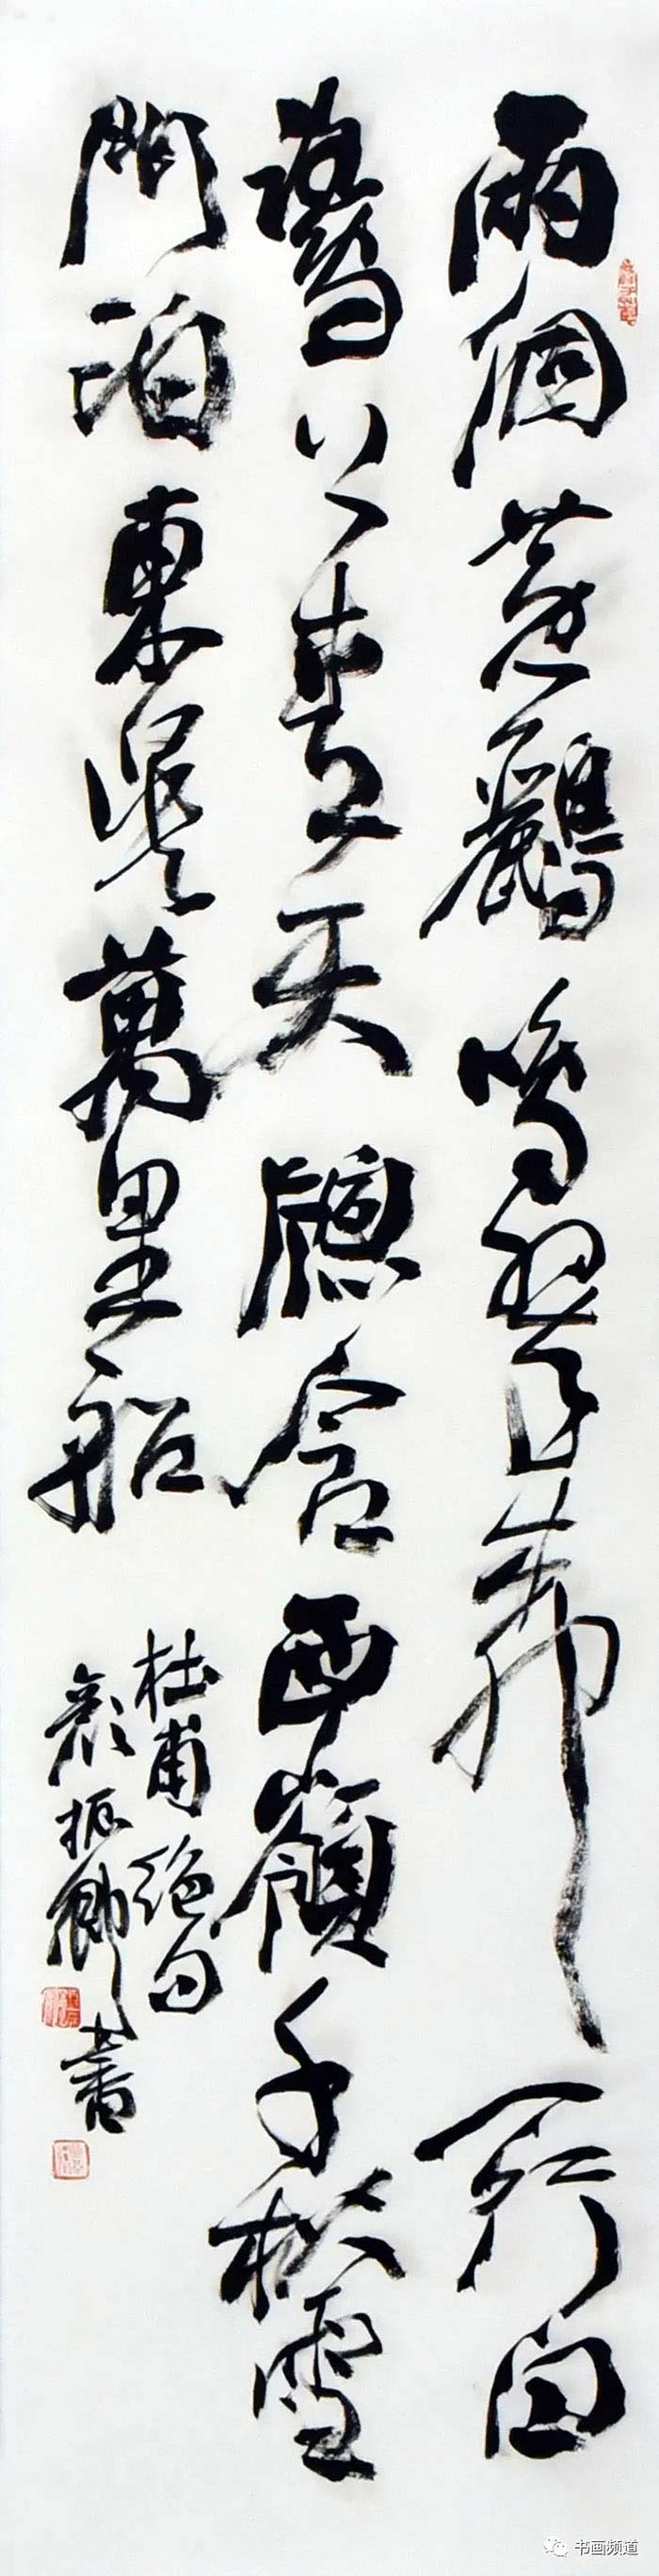 兩個黃鸝鳴翠柳一行白
鷺上青天牕含西嶺千秋雪
門泊東吳萬里船
杜甫絕句
顏振卿書
书画频道